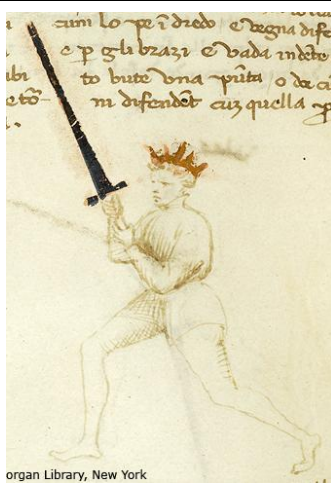 cum lo pe i dredo e vegna dife
e p gli brazi e vada indreto
ubi to bute vna punta o de cu
eto- ni difendet cuz quella p
organ Library, New York